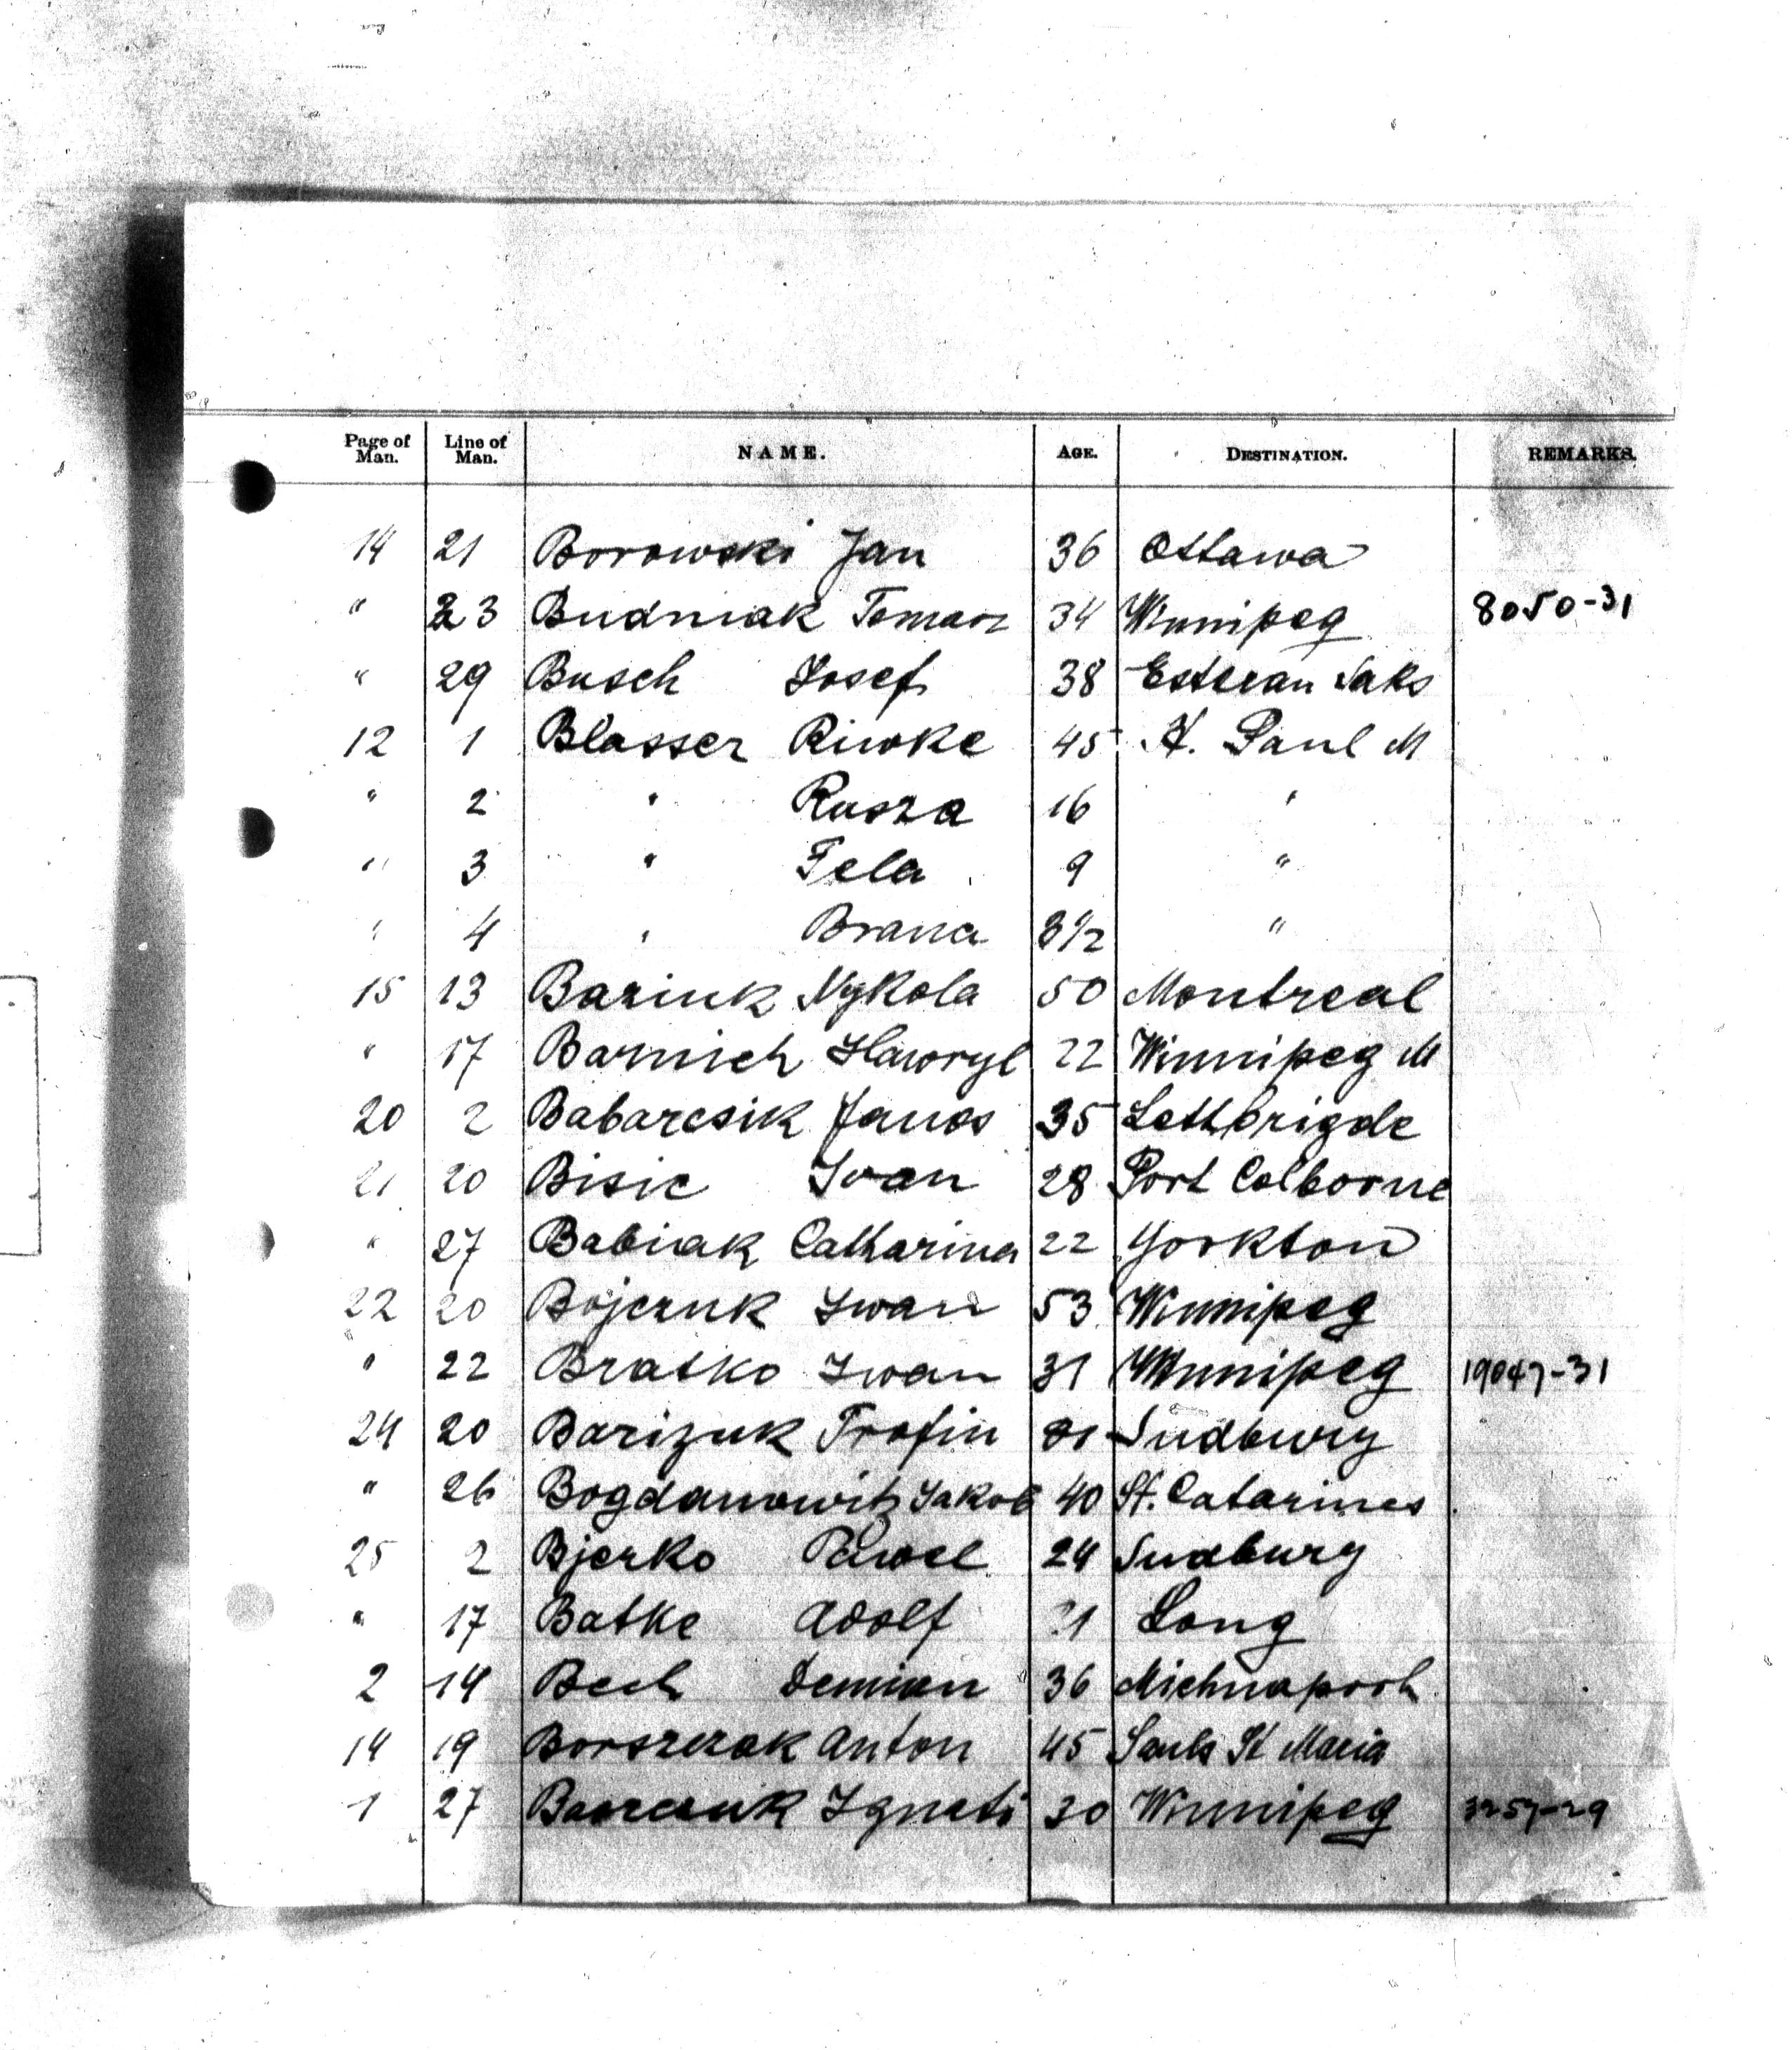 Page of Man. Line of Man. NAME. AGE. DESTINATION. REMARKS.
14 21 Borowski Jan 36 Ottawa
" 23 Budniak Tomasz 34 Winnipeg 8050-31
" 29 Busch Josef 38 Estevan Saks
12 1 Blasser Riwke 45 St. Paul M
" 2 " Rusza 16 "
" 3 " Fela 9 "
" 4 " Brana 3½ "
15 13 Bariuk Nykola 50 Montreal
" 17 Barnich Hawryl 22 Winnipeg M
20 2 Babarcsik Janos 35 Lethbrigde
21 20 Bisic Ivan 28 Port Colborne
" 27 Babiak Catharina 22 Yorkton
22 20 Bojczuk Iwan 53 Winnipeg
" 22 Bratko Iwan 31 Winnipeg 19047-31
24 20 Barizuk Trofin Sudbury
" 26 Bogdanowitz Jakob 40 St. Catarines
25 2 Bjerko Pawel 24 Sudbury
" 17 Batke Adolf Long
2 14 Bech Demian 36
14 19 Borszczak Anton 45 Sault St Maria
1 27 Ignati 30 Winnipeg 3257-29